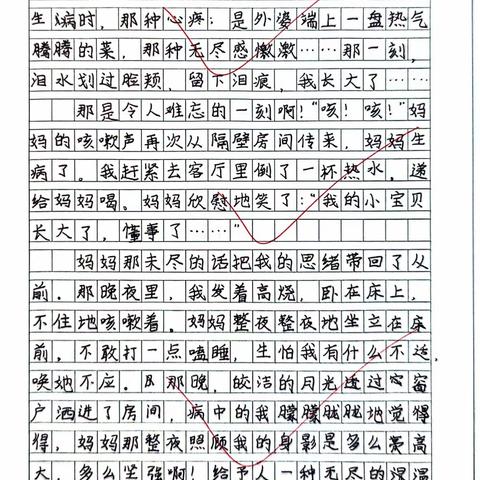 生病时，那种心疼；是外婆端上一盘热气
腾腾的菜，那种无尽感激……那一刻，
泪水划过脸颊，留下泪痕，我长大了……
那是令人难忘的一刻啊！“咳！咳！”妈
妈的咳嗽声再次从隔壁房间传来，妈妈生
病了。我赶紧去客厅里倒了一杯热水，递
给妈妈喝。妈妈欣慰地笑了：“我的小宝贝
长大了，懂事了……”
妈妈那未尽的话把我的思绪带回了从
前。那晚夜里，我发着高烧，卧在床上，
不住地咳嗽着。妈妈整夜整夜地坐立在床
前，不敢打一点瞌睡，生怕我有什么不适，
唤她不应。那晚，皎洁的月光透过窗
户洒进了房间，病中的我朦朦胧胧地觉得
得，妈妈那整夜照顾我的身影是多么高
大，多么坚强啊！给予人一种无尽的温